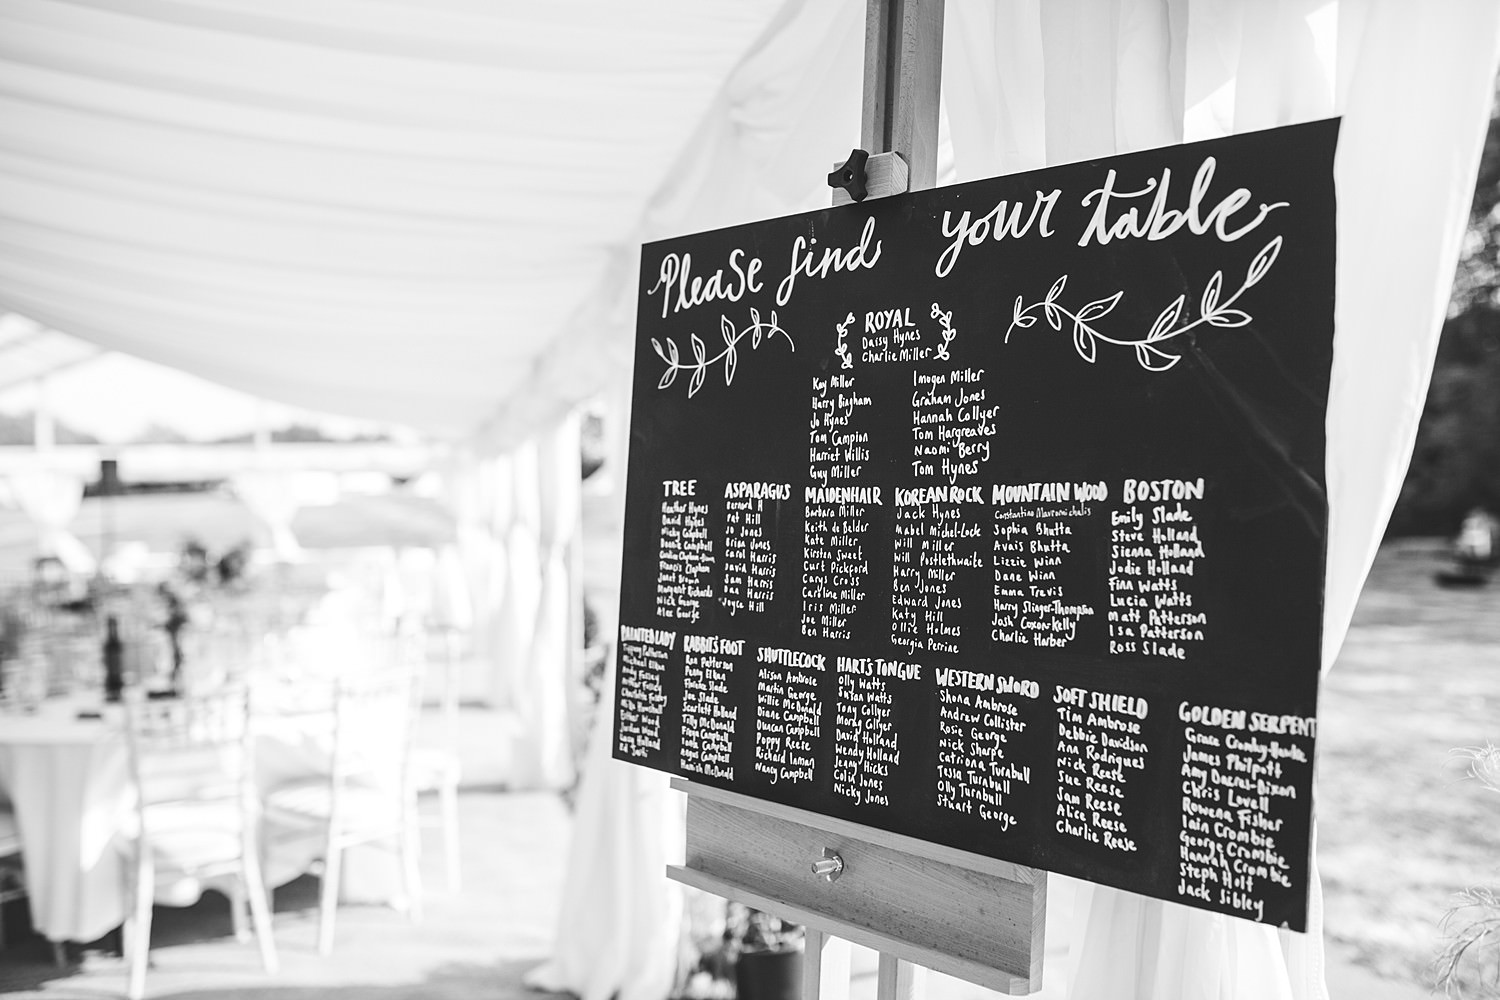 Please find your table
ROYAL
Daisy Hynes
Charlie Miller
Kay Miller
Harry Bingham
Jo Hynes
Tom Campion
Harriet Willis
Guy Miller
Imogen Miller
Graham Jones
Hannah Collyer
Tom Hargreaves
Naomi Berry
Tom Hynes
TREE
Heather Hynes
David Hynes
Nicky Campbell
Donald Campbell
Francis Clapham
Janet Brown
Margaret Richards
Nick George
Alex George
ASPARAGUS
Bernard H
Pat Hill
Jo Jones
Brian Jones
Carol Harris
David Harris
Sam Harris
Dan Harris
Joyce Hill
MAIDENHAIR
Barbara Miller
Keith de Belder
Kate Miller
Kirsten Sweet
Curt Pickford
Carys Cross
Caroline Miller
Iris Miller
Joe Miller
Ben Harris
KOREAN ROCK
Jack Hynes
Mabel Michel-Lock
Will Miller
Will Postlethwaite
Harry Miller
Ben Jones
Edward Jones
Katy Hill
Ollie Holmes
Georgia Perrine
MOUNTAIN WOOD
Constantino Mavromichalis
Sophia Bhutta
Avais Bhutta
Lizzie Winn
Dane Winn
Emma Trevis
Harry Slinger-Thompson
Josh Coxon-Kelly
Charlie Harber
BOSTON
Emily Slade
Steve Holland
Sienna Holland
Jodie Holland
Finn Watts
Lucia Watts
Matt Patterson
Isa Patterson
Ross Slade
PAINTED LADY
Tiffany Patterson
Michael Elban
Andy Fussey
Arthur Fussey
Charlotte Fussey
Esther Wood
Wood
Holland
Ed
RABBIT'S FOOT
Ron Patterson
Penny Elban
Slade
Joe Slade
Scarlett Holland
Tilly McDonald
Freya Campbell
Campbell
Angus Campbell
Hamish McDonald
SHUTTLECOCK
Alison Ambrose
Martin George
Willie McDonald
Diane Campbell
Duncan Campbell
Poppy Reese
Richard Inman
Nancy Campbell
HART'S TONGUE
Olly Watts
Susan Watts
Tony Collyer
Morag Collyer
David Holland
Wendy Holland
Jenny Hicks
Colin Jones
Nicky Jones
WESTERN SWORD
Shona Ambrose
Andrew Collister
Rosie George
Nick Sharpe
Catriona Turnbull
Tessa Turnbull
Olly Turnbull
Stuart George
SOFT SHIELD
Tim Ambrose
Debbie Davidson
Ana Rodrigues
Nick Reese
Sue Reese
Sam Reese
Alice Reese
Charlie Reese
GOLDEN SERPENT
Grace Cromby-Hawke
James Philpott
Amy Dacres-Dixon
Chris Lovell
Rowena Fisher
Iain Crombie
George Crombie
Hannah Crombie
Steph Holt
Jack Sibley